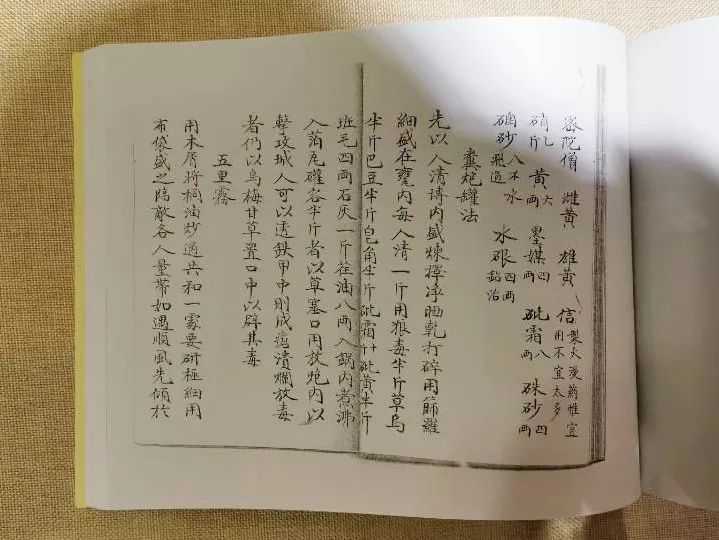 密陀僧 雌黃 雄黃 信 製火藥惟宜用不宜太多
硝斤 黃两 墨媒四两 砒霜八两 硃砂四两
硇砂八不水飛過 水銀四两鉛治
糞炮罐法
先以人清内盛煉擇淨晒乾打碎用篩羅
細盛在甕內每人清一斤用狼毒半斤草烏
半斤巴豆半斤皂角半斤砒霜砒黃半斤
班毛四两石灰一斤荏油八两入鍋內煮沸
入薄瓦罐容半斤者以草塞口用放炮內以
擊攻城人可以透鉄甲中則成瘡潰爛放毒
者仍以烏梅甘草置口中以辟其毒
五里霧
用木屑將桐油炒過共和一處要研極細用
布袋盛之臨敵各人量帶如遇順風先傾於